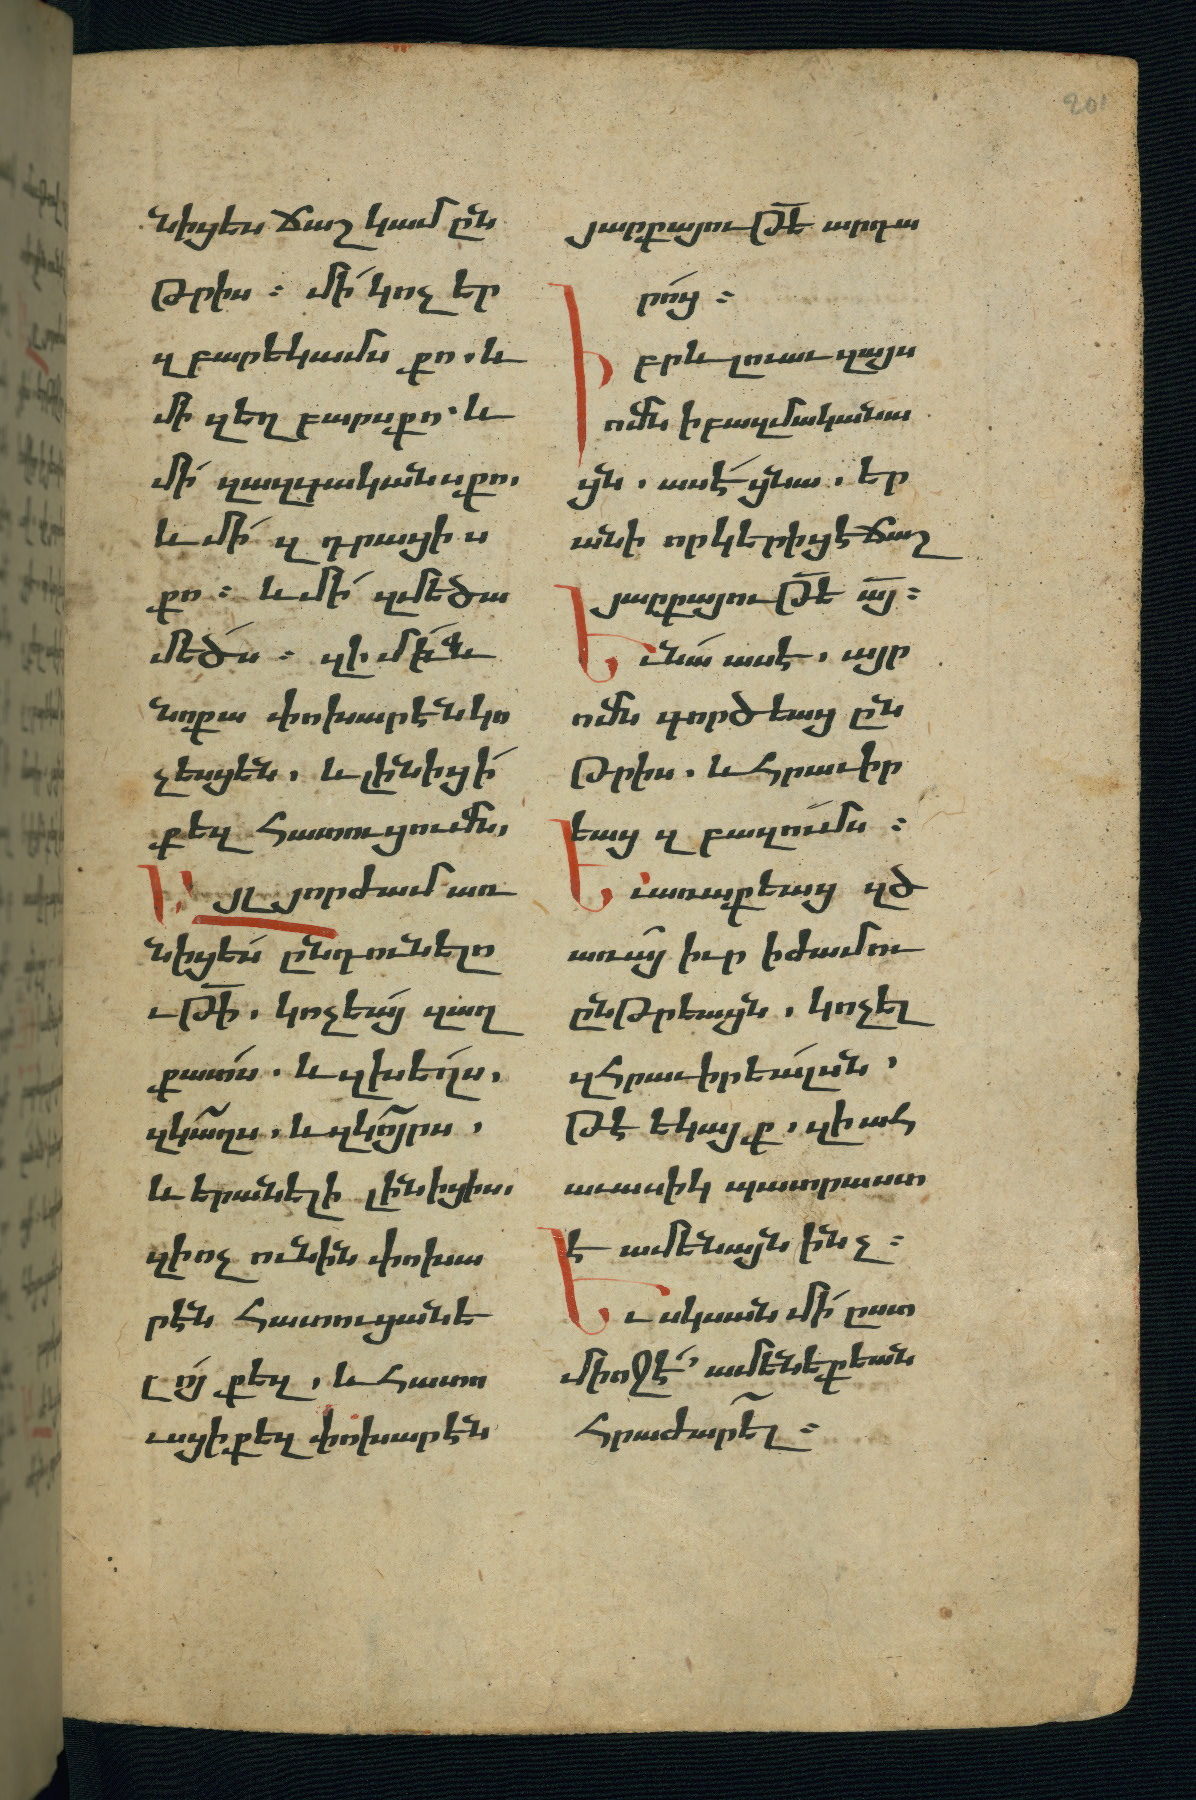 201
նիցես ճաշ կամ ըն
թրիս ։ մի՛ կոչ եր
զ բարեկամս քո . և
մի զեղ բարսքո . և
մի՛ զազգականսքո,
և մի՛ զ դրացիս
քո ։ և մի՛ զմեծա
մեծս ։ զի մի՛ և
նոքա փոխարէն կո
չեսցեն, և լինիցի՛
քեզ հատուցումն,
Այլ յորժամ առ
նիցես ընդունելո
ւթի՛, կոչեա՛ զաղ
քատս . և զխեղս,
զկաղս, և զկոյրս,
և երանելի լինիցիս,
զի ոչ ունին փոխա
րէն հատուցանե
լ ոյ քեզ, և հատո
ւսցի քեզ փոխարէն
յարքայութէ արդա
րո՛ց ։
Իբրև լուաւ զայս
ոմն ի բազմականա
ցն . ասէ՛ ցնա . եր
անի որ կերիցէ ճաշ
յարքայութէ այ ։
Եւ նա՛ ասէ, այր
ոմն գործեաց ըն
թրիս . և հրաւիր
եաց զ բազումս ։
Եւ առաքեաց զծ
առայ իւր ի ժամու
ընթրեացն, կոչել
զհրաւիրեալսն,
թէ եկայ ք, զի ահ
աւասիկ պատրաստ
է ամենայն ինչ ։
Եւ սկսան մի՛ ըստ
միոջէ՛ ամենեքեան
հրաժարել ։